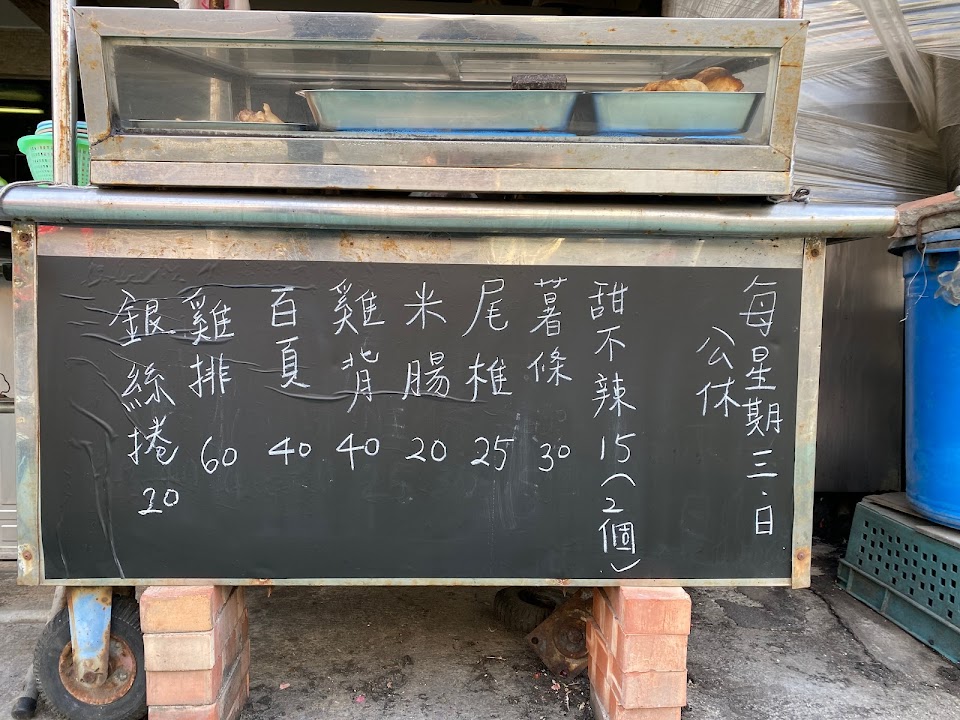 每星期三.日
公休
甜不辣 15(2個)
薯條 30
尾椎 25
米腸 20
雞背 40
百頁 40
雞排 60
銀絲捲 20